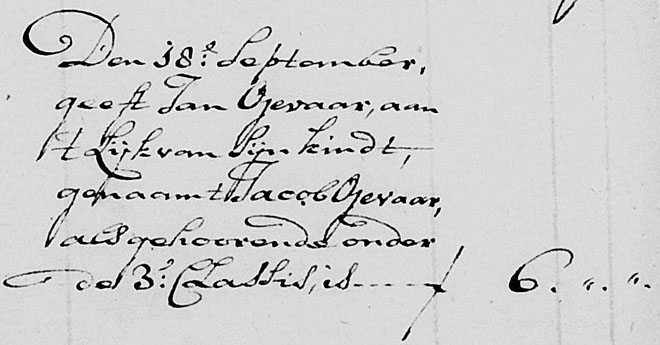 Den 18.e September,
geeft Jan Gevaar, aan
't Lijk van Sijn kindt,
genaamt Jacob Gevaar,
als gehoorende onder
de 3.e Classis, is ---- ƒ 6. „. „.